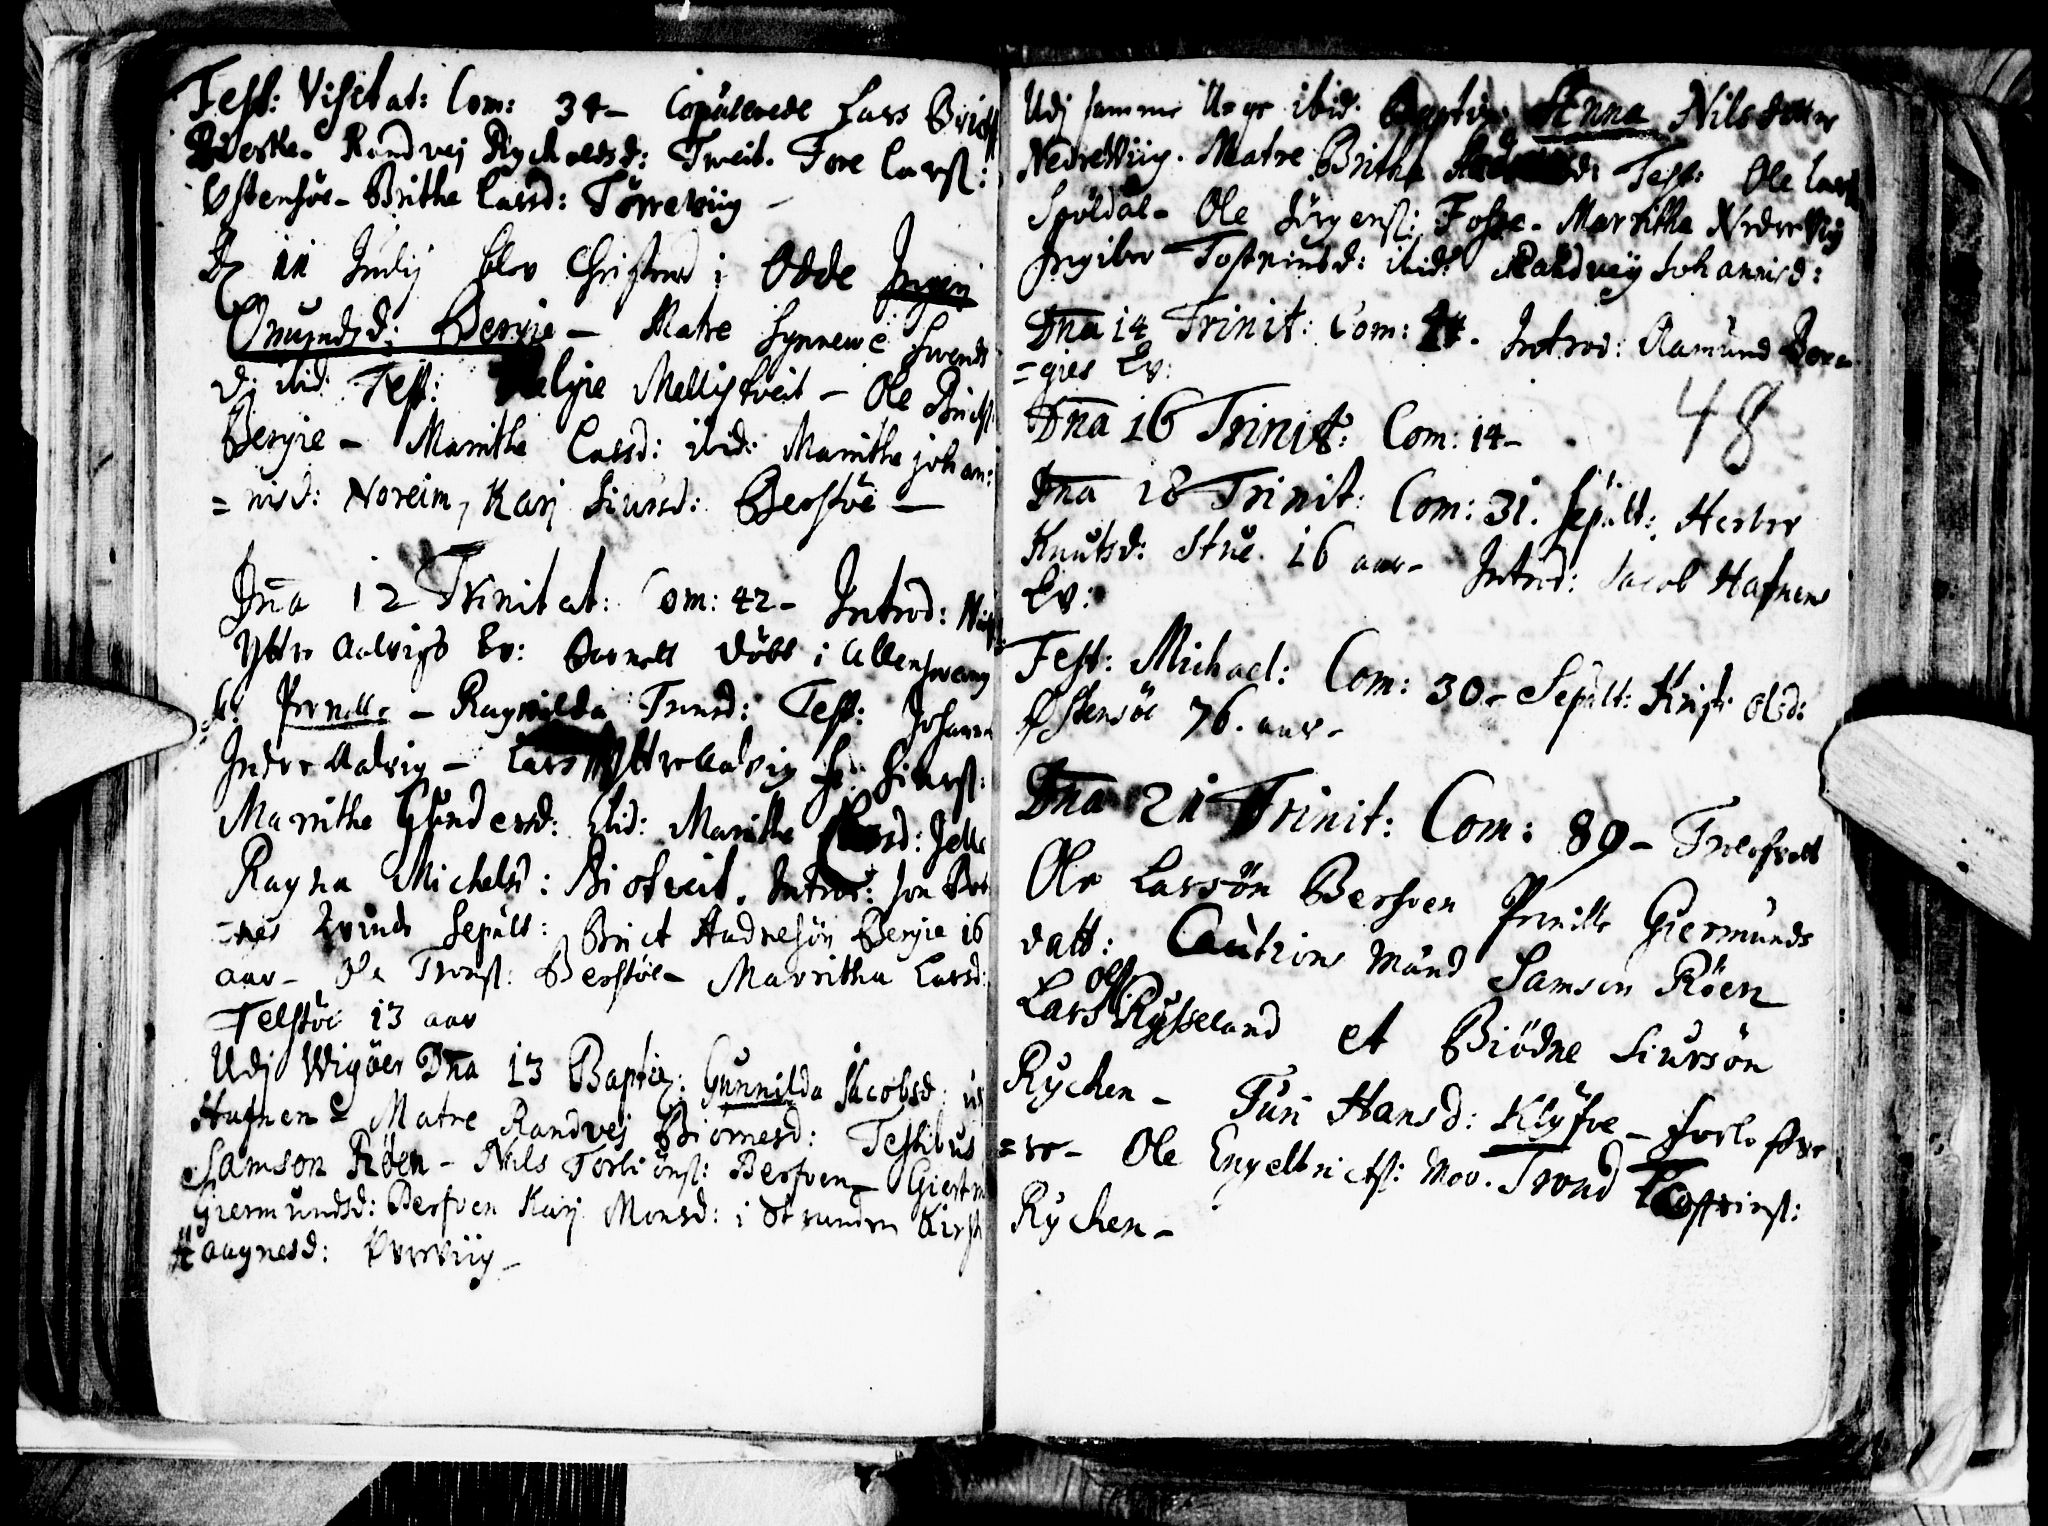 Fest: Visitat: Com: 34 - Copulerede Lars Brichs:
Bierke. Randvej Rycholdsd: Tveit. Tore Larss:
Østensöe - Brithe Larsd: Törreviig -
D 11 Julij blev Christned i Odde Ingeri
Omundsd: Bergie - Matre Synneve Svends
D: ibid: Test: Helgie Mellistveit - Ole Brichs:
Bergie - Marrithe Larsd: ibid: Marrithe johan:
= nisd: Noreim, Karj Siursd: Berstöe -
Dna 12 Trinitat: Com: 42 - Introd:
Yttre Aalvigs Ev: Barnett döbt i Ullensvang
Pernelle - Ragnilda Tronsd: Test: Johann
Indre Aalvig - Lars Yttre Aalvig Siurs:
Marrithe Gundersd: ibid: Marrithe Larsd: Jelle
Ragna Michelsd: Biotveit. Introd: Jon Ber
= ges Qvinde Sepult: Brict Audnesön Bergie 16
aar - Ole Trons: Berstöe - Marritha Larsd:
Telstöe 13 aar
Udj Wigöer Dna 13 Baptiz: Gunnilda Jacobsd:
Hafnen - Matre Randvej Biornesd: Testibus
Samson Röen - Nils Torbiörns: Berfven -
Giermundsd: Berfven Karj Monsd: i Stranden Kirst
Haagnesd: Evreviig -
Udj samme Uge ibid: Baptiz: Anna Nils datter
Nedreviig. Matre Britha Test: Ole Lars
Spoldal - Ole Jörgens: Fosse - Marritha Nedreviig
Ingibor Tostensd: ibid: Randveij Johannisd:
Dna 14 Trinit: Com: 44. Introd: Aamund Ber
= gies Ev:
48
Dna 16 Trinit: Com: 14 -
Dna 18 Trinit: Com: 31. Sepult: Herbor
Knutsd: Stue. 16 aar - Introd: Jacob Hafnens
Ev:
Fest: Michael: Com: 30 - Sepult: Krist: Olsd:
Østensöe 76. aar -
Dna 21 Trinit: Com: 89 - Trolofvett
Ole Larsön Berfven Pernille Giermunds
datt: Cautions Mænd Samson Röen
Ols:
Lars Rysseland et Biödne Siursön
Rychen - Turi Hansd: Klyfve - Forlofve
= re - Ole Engelbricts: Mov. Trond Tostens:
Rychen -